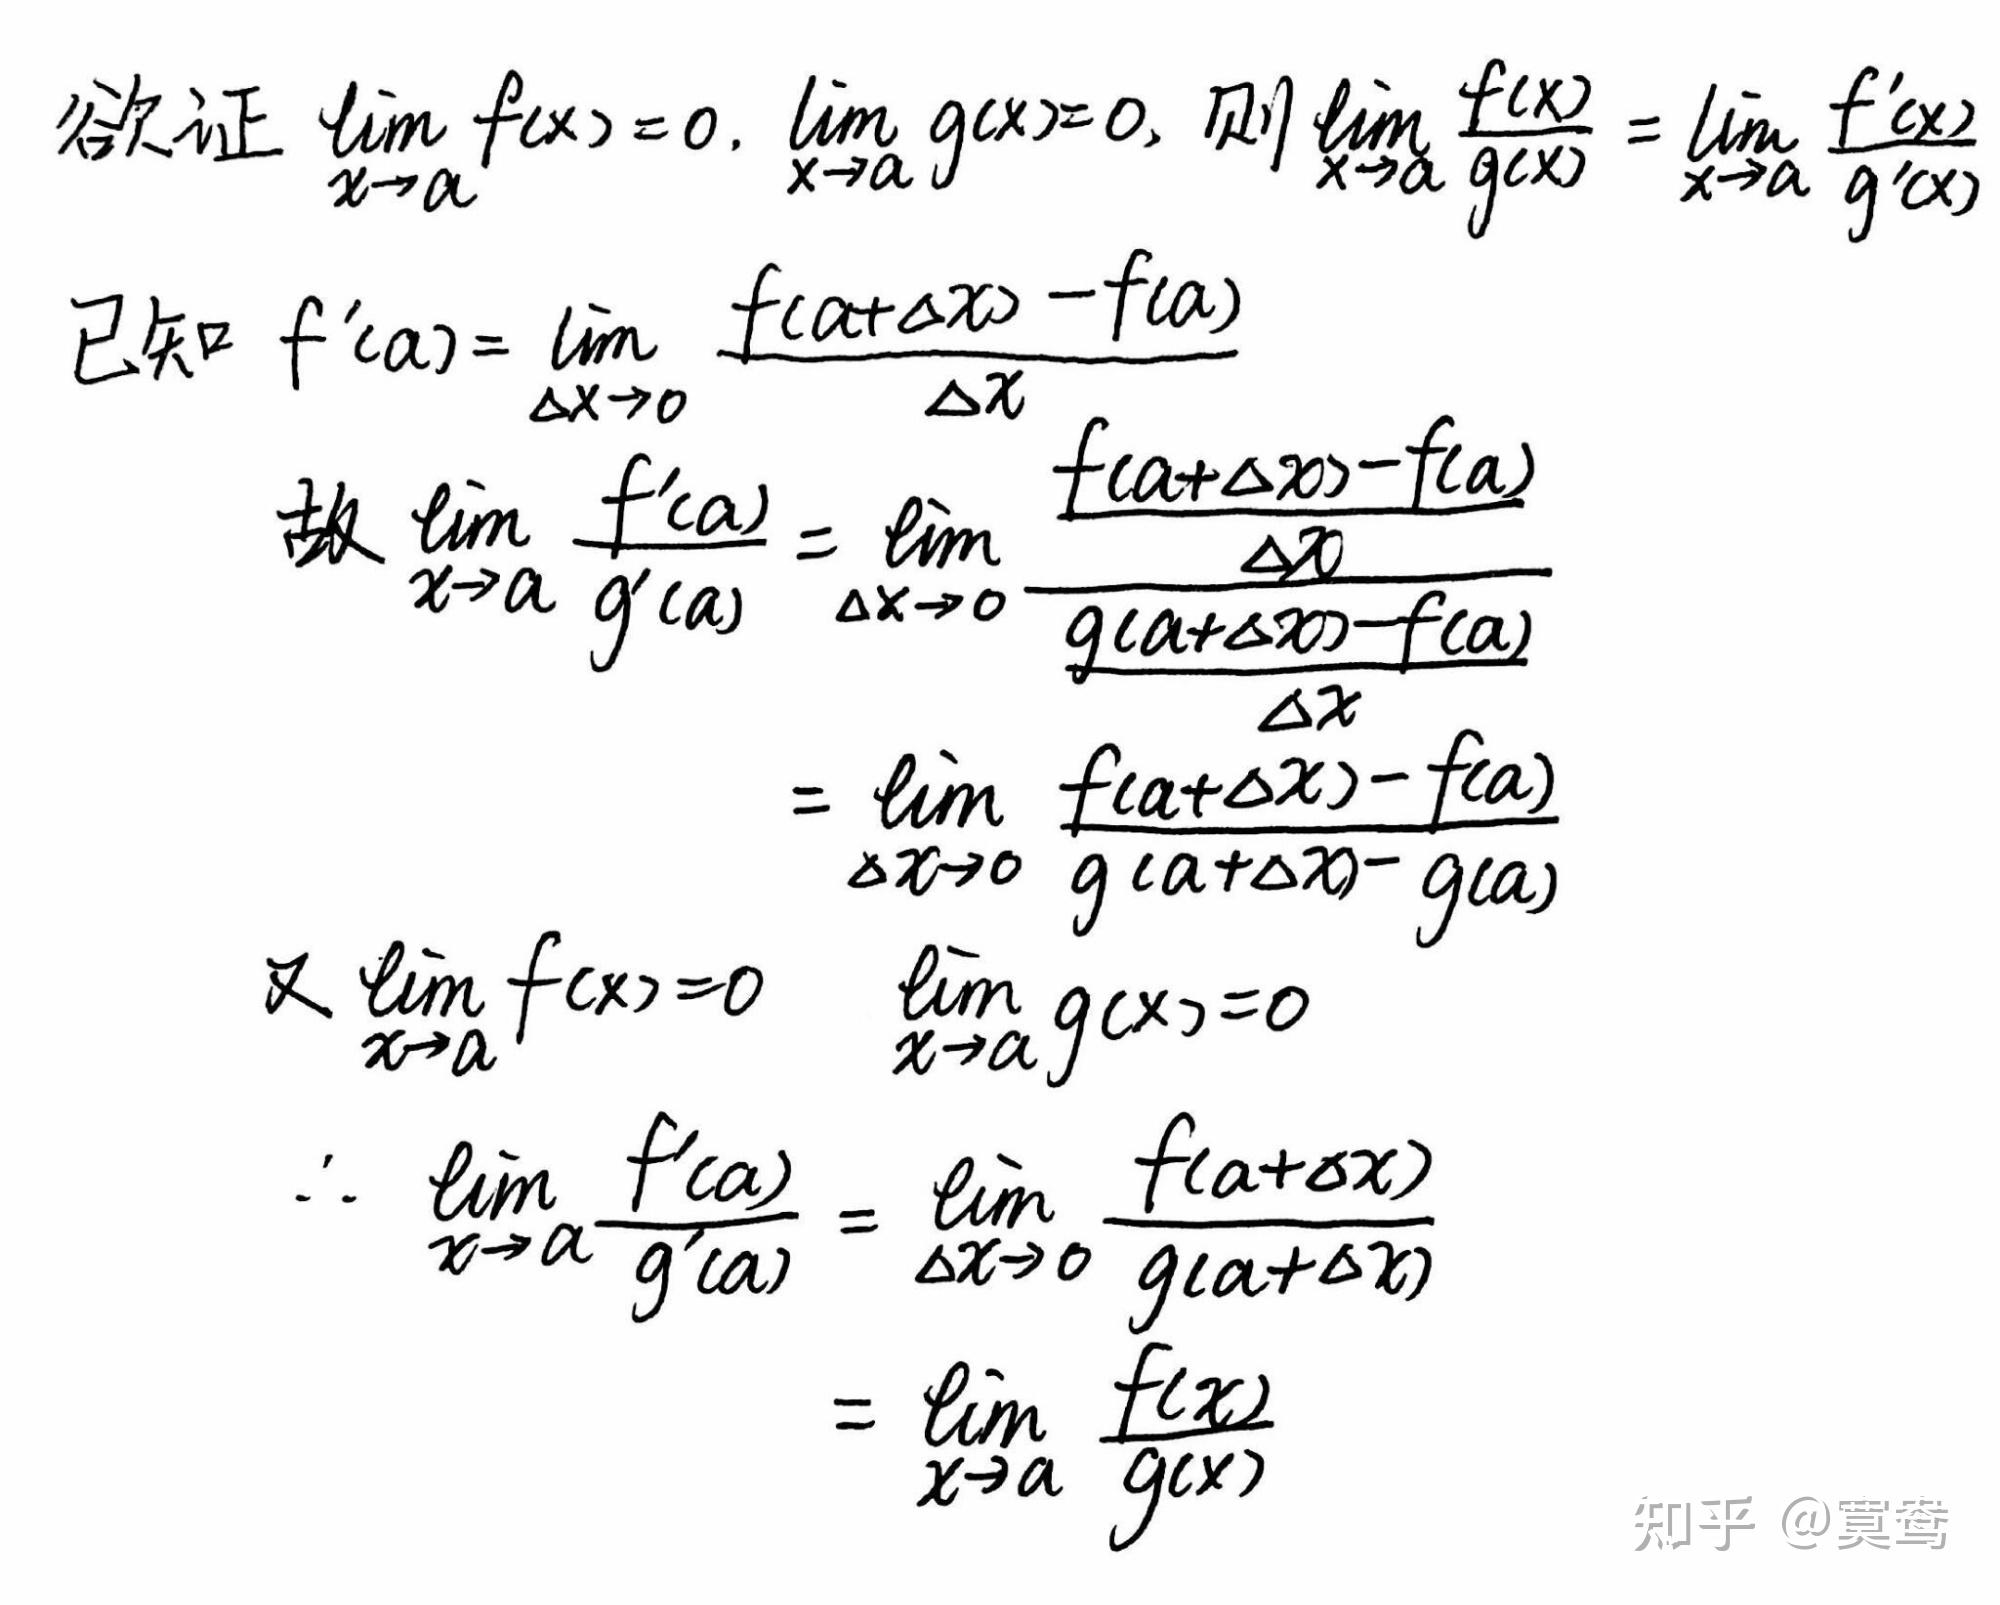 欲证 lim_{x→a} f(x)=0, lim_{x→a} g(x)=0, 则 lim_{x→a} f(x)/g(x) = lim_{x→a} f'(x)/g'(x)
已知 f'(a) = lim_{Δx→0} (f(a+Δx)-f(a))/Δx
故 lim_{x→a} f'(a)/g'(a) = lim_{Δx→0} ((f(a+Δx)-f(a))/Δx)/((g(a+Δx)-f(a))/Δx)
= lim_{Δx→0} (f(a+Δx)-f(a))/(g(a+Δx)-g(a))
又 lim_{x→a} f(x)=0 lim_{x→a} g(x)=0
∴ lim_{x→a} f'(a)/g'(a) = lim_{Δx→0} f(a+Δx)/g(a+Δx)
= lim_{x→a} f(x)/g(x)
知乎 @寘鸯